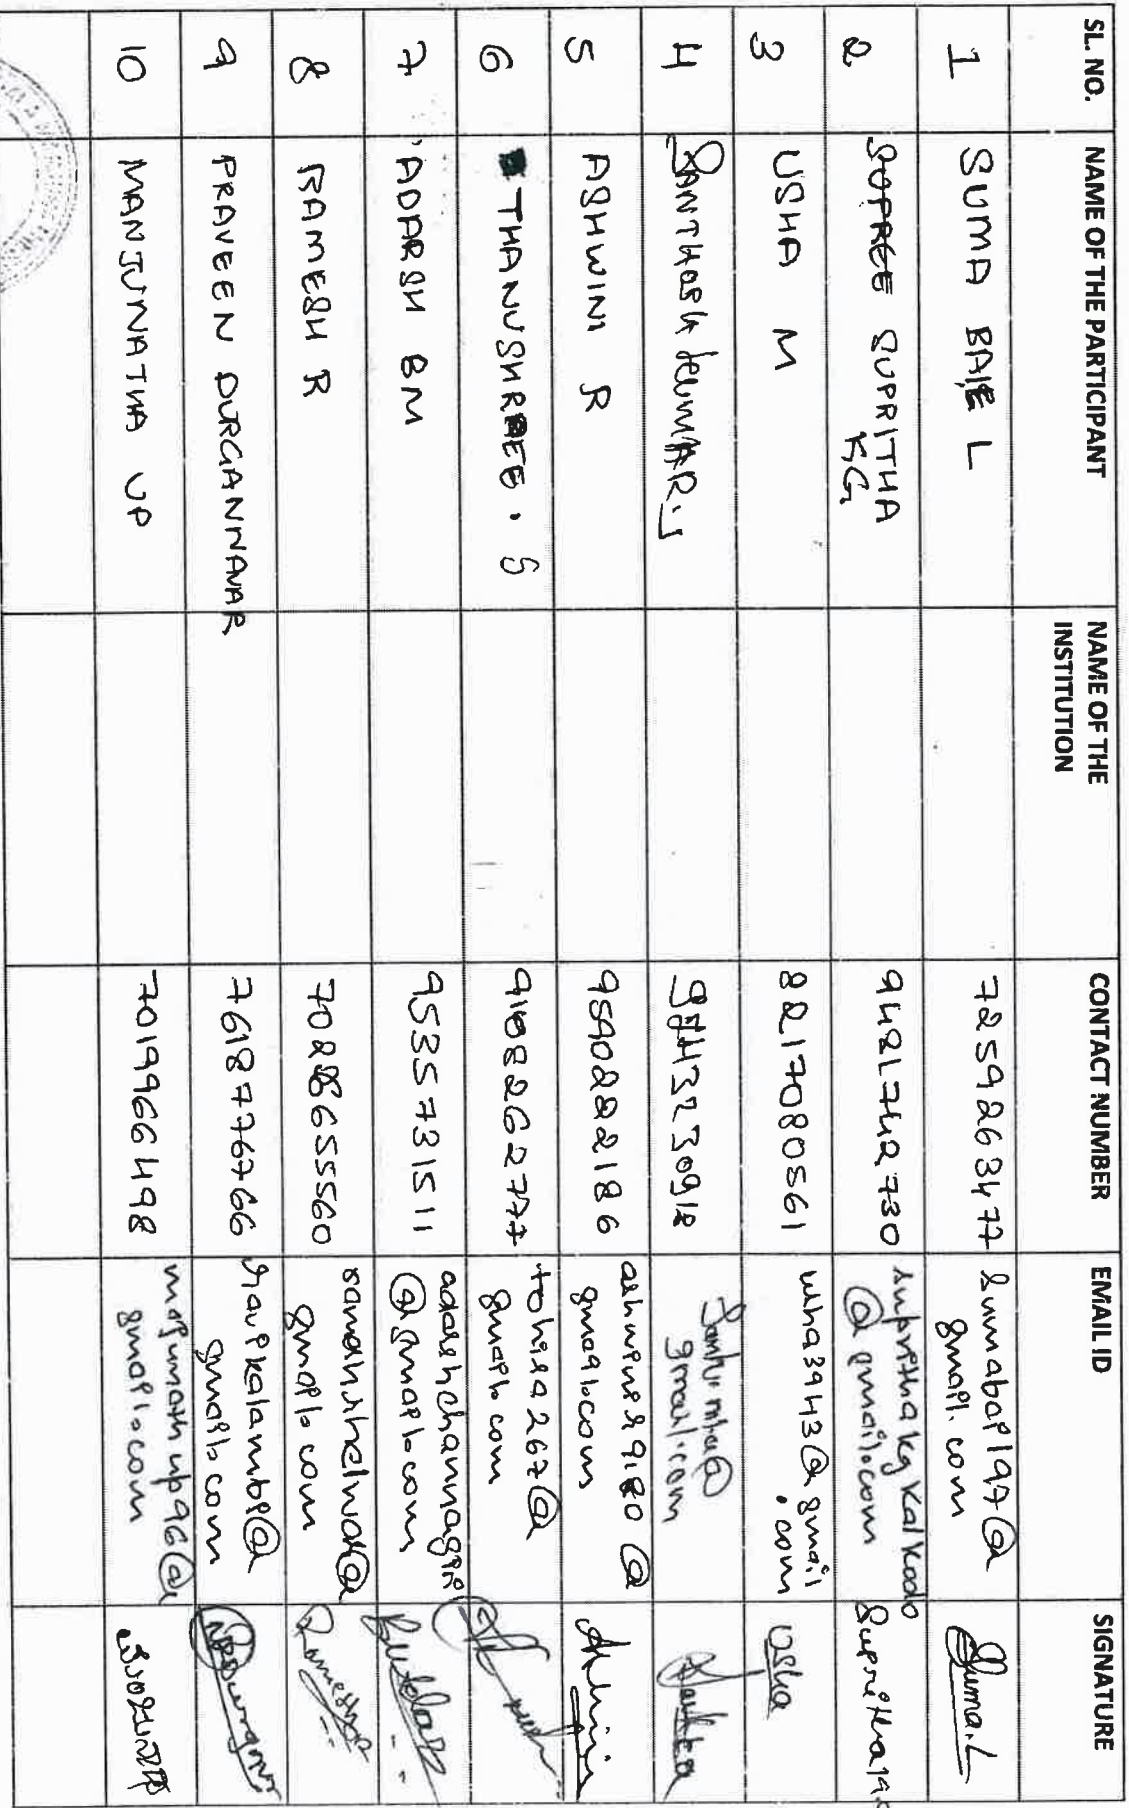 SL. NO. NAME OF THE PARTICIPANT NAME OF THE INSTITUTION CONTACT NUMBER EMAIL ID SIGNATURE
1 SUMA BAI L 7259263477 sumabai197@gmail.com Suma.L
2 SUPREE SUPRITHA KG 9481742730 suprithakgkalkodo@gmail.com Supritha
3 USHA M 8217080561 usha3943@gmail.com Usha
4 SANTHOSH KUMAR.J gmail.com
5 ASHWINI R 9590222186 gmail.com
6 THANUSHREE. S 9108262777 gmail.com
7 ADARSH BM 9535731511 adarshchannagiri@gmail.com
8 RAMESH R gmail.com
9 PRAVEEN DURGANNAVAR 7618776766 gmail.com
10 MANJUNATHA UP 7019966498 manjunathup96@gmail.com ಮಂಜುನಾಥ